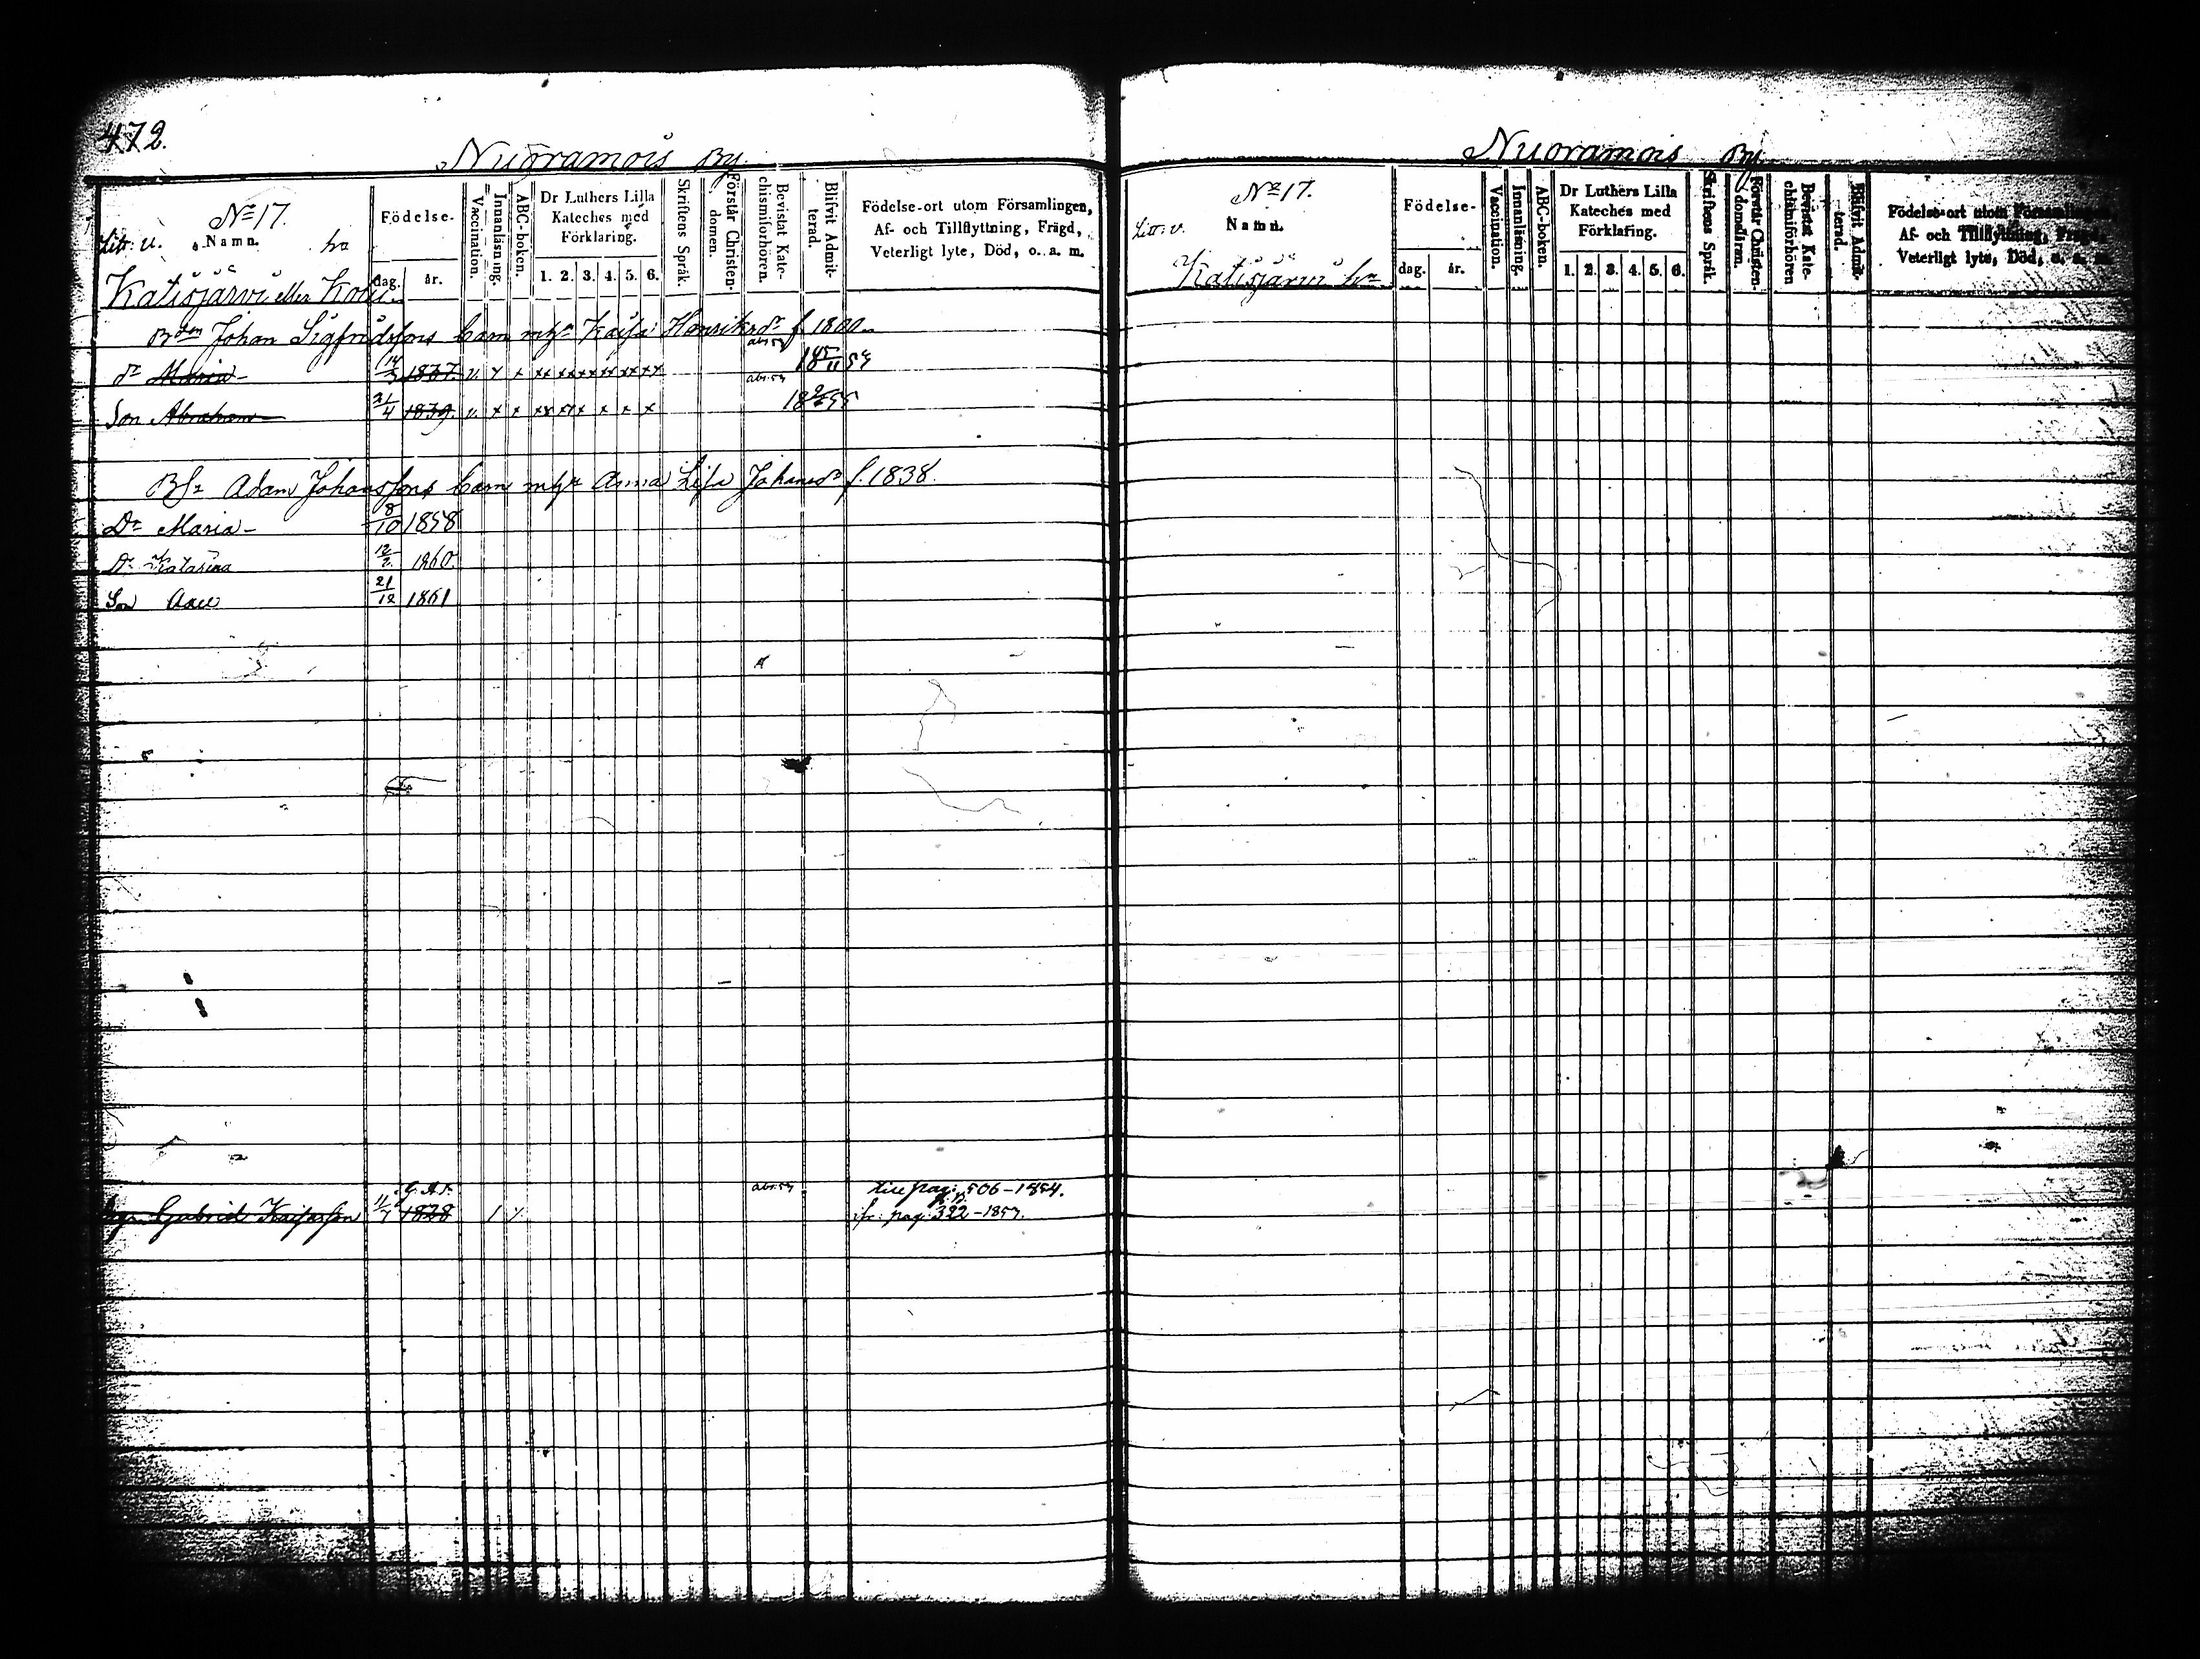 472.
Nuoramois By.
No 17.
Litt: u. Namn. hr
Födelse-
dag. år.
Vaccination.
Innanläsning.
ABC-boken.
Dr Luthers Lilla Kateches med Förklaring.
1. 2. 3. 4. 5. 6.
Skriftens Språk.
Förstår Christendomen.
Bevistat Katechismiförhören.
Blifvit Admitterad.
Födelse-ort utom Församlingen,
Af- och Tillflyttning, Frägd,
Veterligt lyte, Död, o. a. m.
Katisjärvi eller
Johan Sigfridssons barn m Kajsa Henriksdr f. 1800
dr Maria 14/3 1837. v. x x xx xx xx xx xx xx abs: 18 5/11 54
Son Abraham 21/4 1839. v. x x x x x x abs: 18 55
Adam Johanssons barn m Anna Lisa Johansdr f. 1838.
Dr Maria 8/10 1858
Dr Katarina 12/2 1860.
Son 21/12 1861
till pag: 506-1854.
Gabriel Kajsasson 11/7 1828 pag: 322-1853.
Nuoramois By
No 17.
Litt: v. Namn.
Födelse-
dag. år.
Vaccination.
Innanläsning.
ABC-boken.
Dr Luthers Lilla Kateches med Förklaring.
1. 2. 3. 4. 5. 6.
Skriftens Språk.
Förstår Christendomsläran.
Bevistat Katechismiförhören
Blifvit Admitterad.
Födelse-ort utom Församlingen,
Af- och Tillflyttning, Frägd,
Veterligt lyte, Död, o. a. m.
Katisjärvi hr